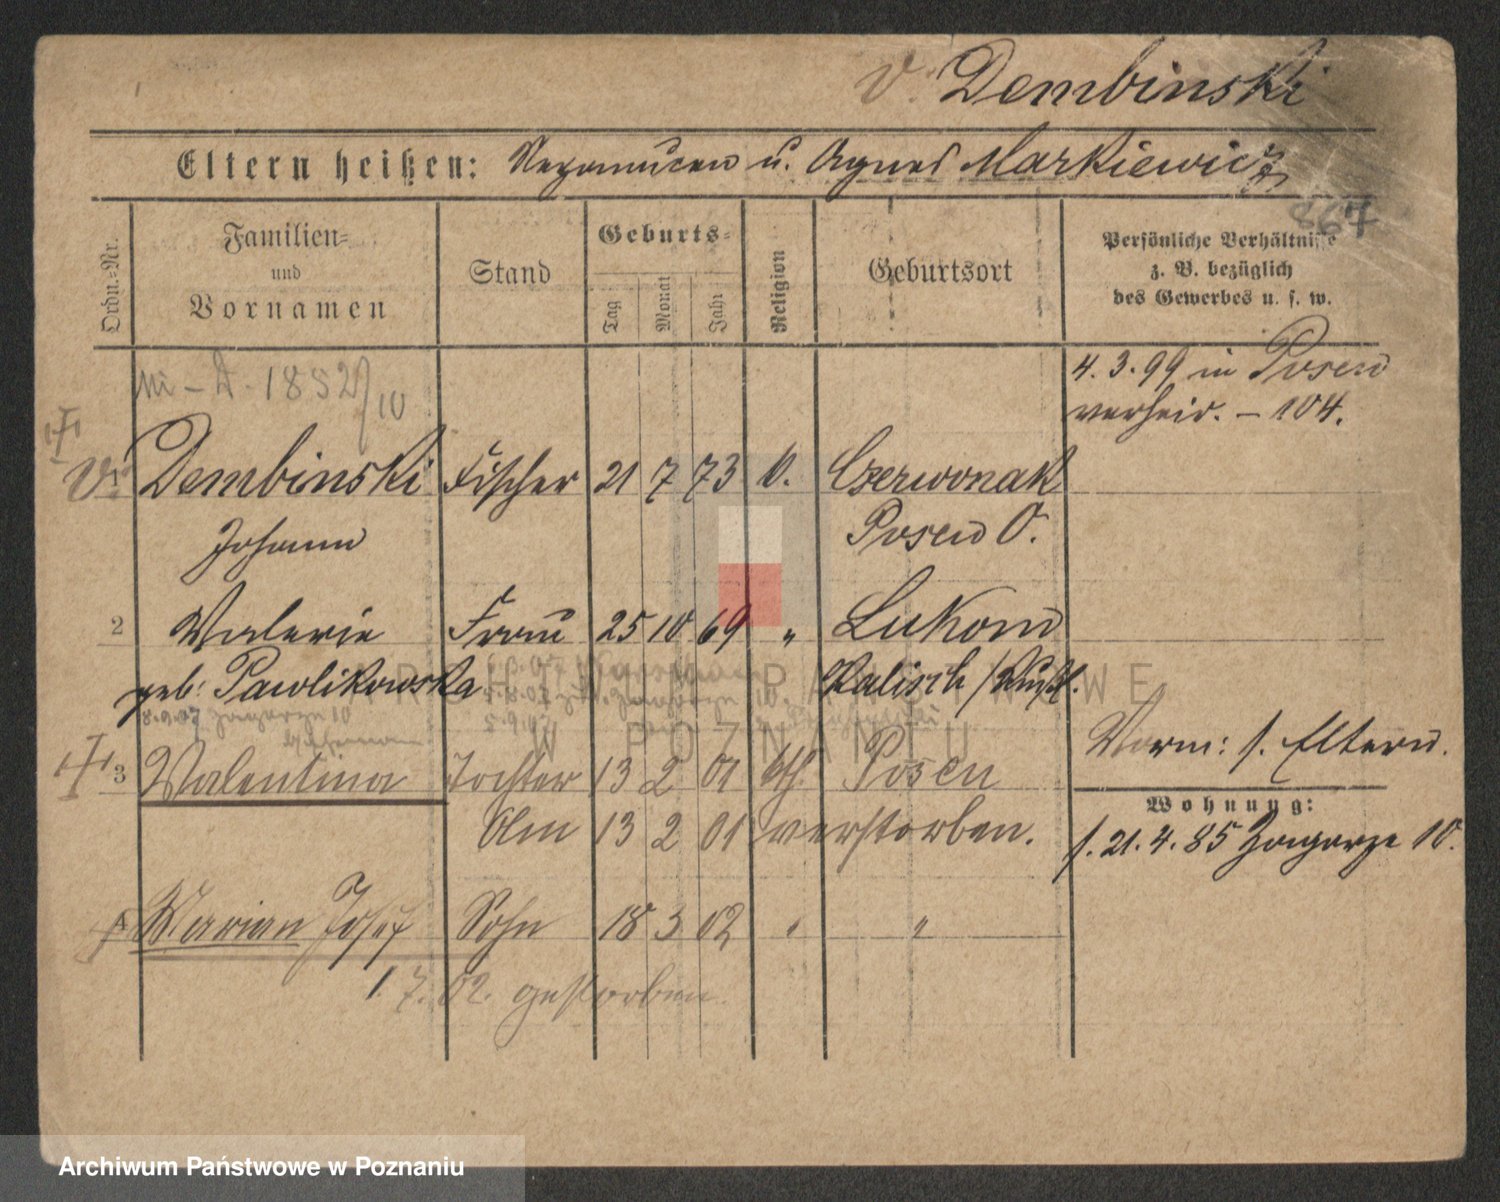 v. Dembinski
Eltern heißen: Nepomucen u. Agnes Markiewicz
867
Ordn.-Nr.
Familien-
und
Vornamen
Stand
Geburts-
Tag
Monat
Jahr
Religion
Geburtsort
Persönliche Verhältnisse
z. B. bezüglich
des Gewerbes u. s. w.
1852/10
4. 3. 99 in Posen
verheir. – 104.
v. Dembinski Fischer 21 7 73 k. Czerwonak
Johann Posen O.
2 Valerie Frau 25 10 69 " Lukom
geb: Pawlikowska Kalisch /Rußl.
Vorm: s. Eltern.
3 Valentina Tochter 13 2 01 kth. Posen
Wohnung:
Am 13 2 01 verstorben.
s. 21. 4. 85 Zagorze 10.
Marian Josef Sohn 18 3 02 " "
1. 7. 02. gestorben.
ARCHIWUM PAŃSTWOWE
W POZNANIU
Archiwum Państwowe w Poznaniu